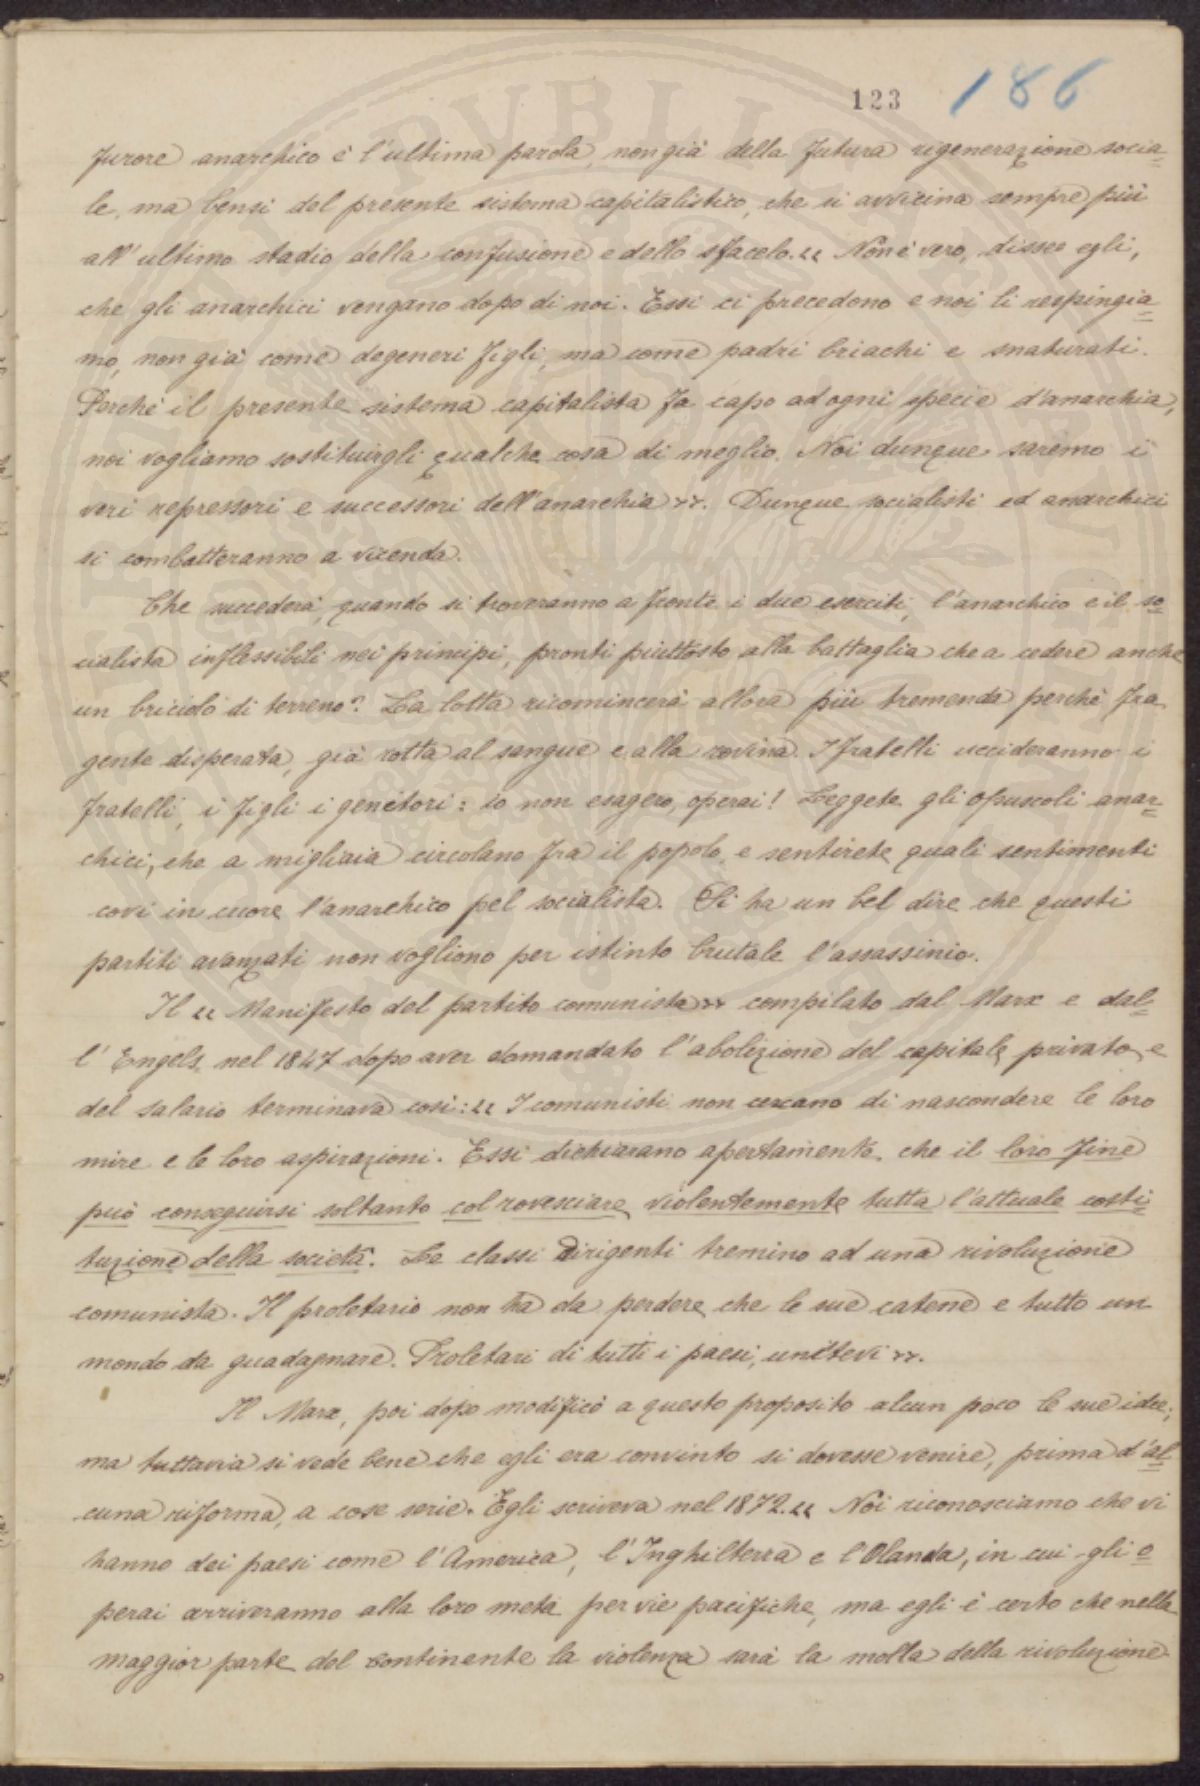 123 186
furore anarchico è l'ultima parola, non già della futura rigenerazione socia=
le, ma bensì del presente sistema capitalistico, che si avvicina sempre più
all'ultimo stadio della confusione e dello sfacelo. « Non è vero, disse egli,
che gli anarchici vengano dopo di noi. Essi ci precedono e noi li respingia=
mo, non già come degeneri figli, ma come padri briachi e snaturati.
Perchè il presente sistema capitalista fa capo ad ogni specie d'anarchia,
noi vogliamo sostituirgli qualche cosa di meglio. Noi dunque saremo i
veri repressori e successori dell'anarchia ». Dunque socialisti ed anarchici
si combatteranno a vicenda.
Che succederà, quando si troveranno a fronte i due eserciti, l'anarchico e il so=
cialista inflessibili nei principi, pronti piuttosto alla battaglia che a cedere anche
un briciolo di terreno? La lotta ricomincerà allora più tremenda perchè fra
gente disperata, già rotta al sangue e alla rovina. I fratelli uccideranno i
fratelli, i figli i genitori: io non esagero, operai! Leggete gli opuscoli anar=
chici, che a migliaia circolano fra il popolo, e sentirete quali sentimenti
covi in cuore l'anarchico pel socialista. Si ha un bel dire che questi
partiti avanzati non vogliono per istinto brutale l'assassinio.
Il « Manifesto del partito comunista » compilato dal Marx e dal=
l'Engels nel 1847 dopo aver domandato l'abolizione del capitale privato e
del salario terminava così: « I comunisti non cercano di nascondere le loro
mire e le loro aspirazioni. Essi dichiarano apertamente, che il loro fine
può conseguirsi soltanto col rovesciare violentemente tutta l'attuale costi=
tuzione della società. Le classi dirigenti tremino ad una rivoluzione
comunista. Il proletario non ha da perdere che le sue catene e tutto un
mondo da guadagnare. Proletari di tutti i paesi, unitevi ».
Il Marx, poi dopo modificò a questo proposito alcun poco le sue idee;
ma tuttavia si vede bene che egli era convinto si dovesse venire, prima d'al=
cuna riforma, a cose serie. Egli scriveva nel 1872. « Noi riconosciamo che vi
hanno dei paesi come l'America, l'Inghilterra e l'Olanda, in cui gli o=
perai arriveranno alla loro meta per vie pacifiche, ma egli è certo che nella
maggior parte del continente la violenza sarà la molla della rivoluzione